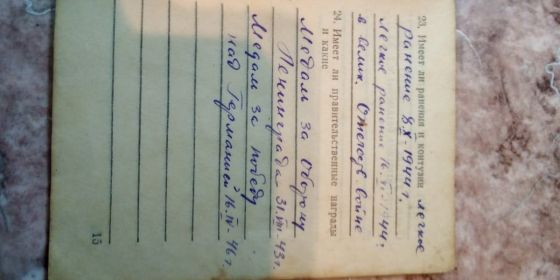 23. Имеет ли ранения и контузии легкое
ранение 8/X-1944 г.
легкое ранение 16.VI-1944 г.
в велик. Отечеств. войне
24. Имеет ли правительственные награды
и какие
Медаль за оборону
Ленинграда 31.VIII-43 г.
Медаль за победу
над Германией 16.IV-46 г.
15